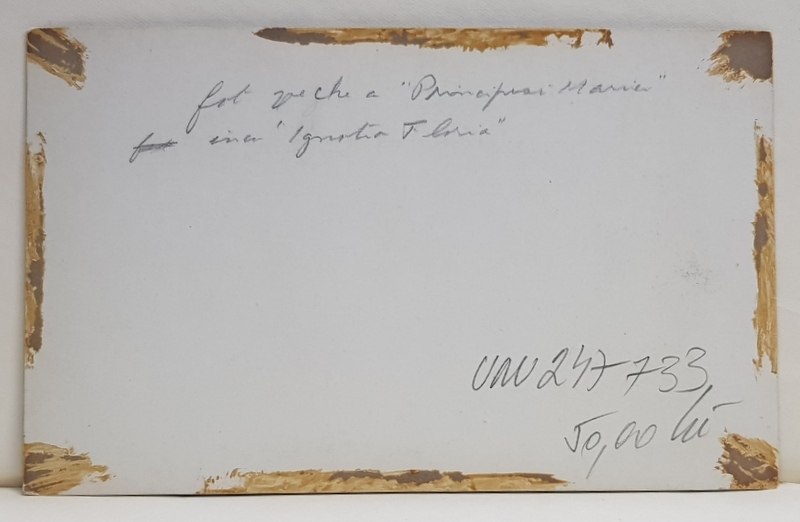 fot veche a "Principesei Maria"
inca "Ignatia Floria"
UNU 247733
50,00 lei